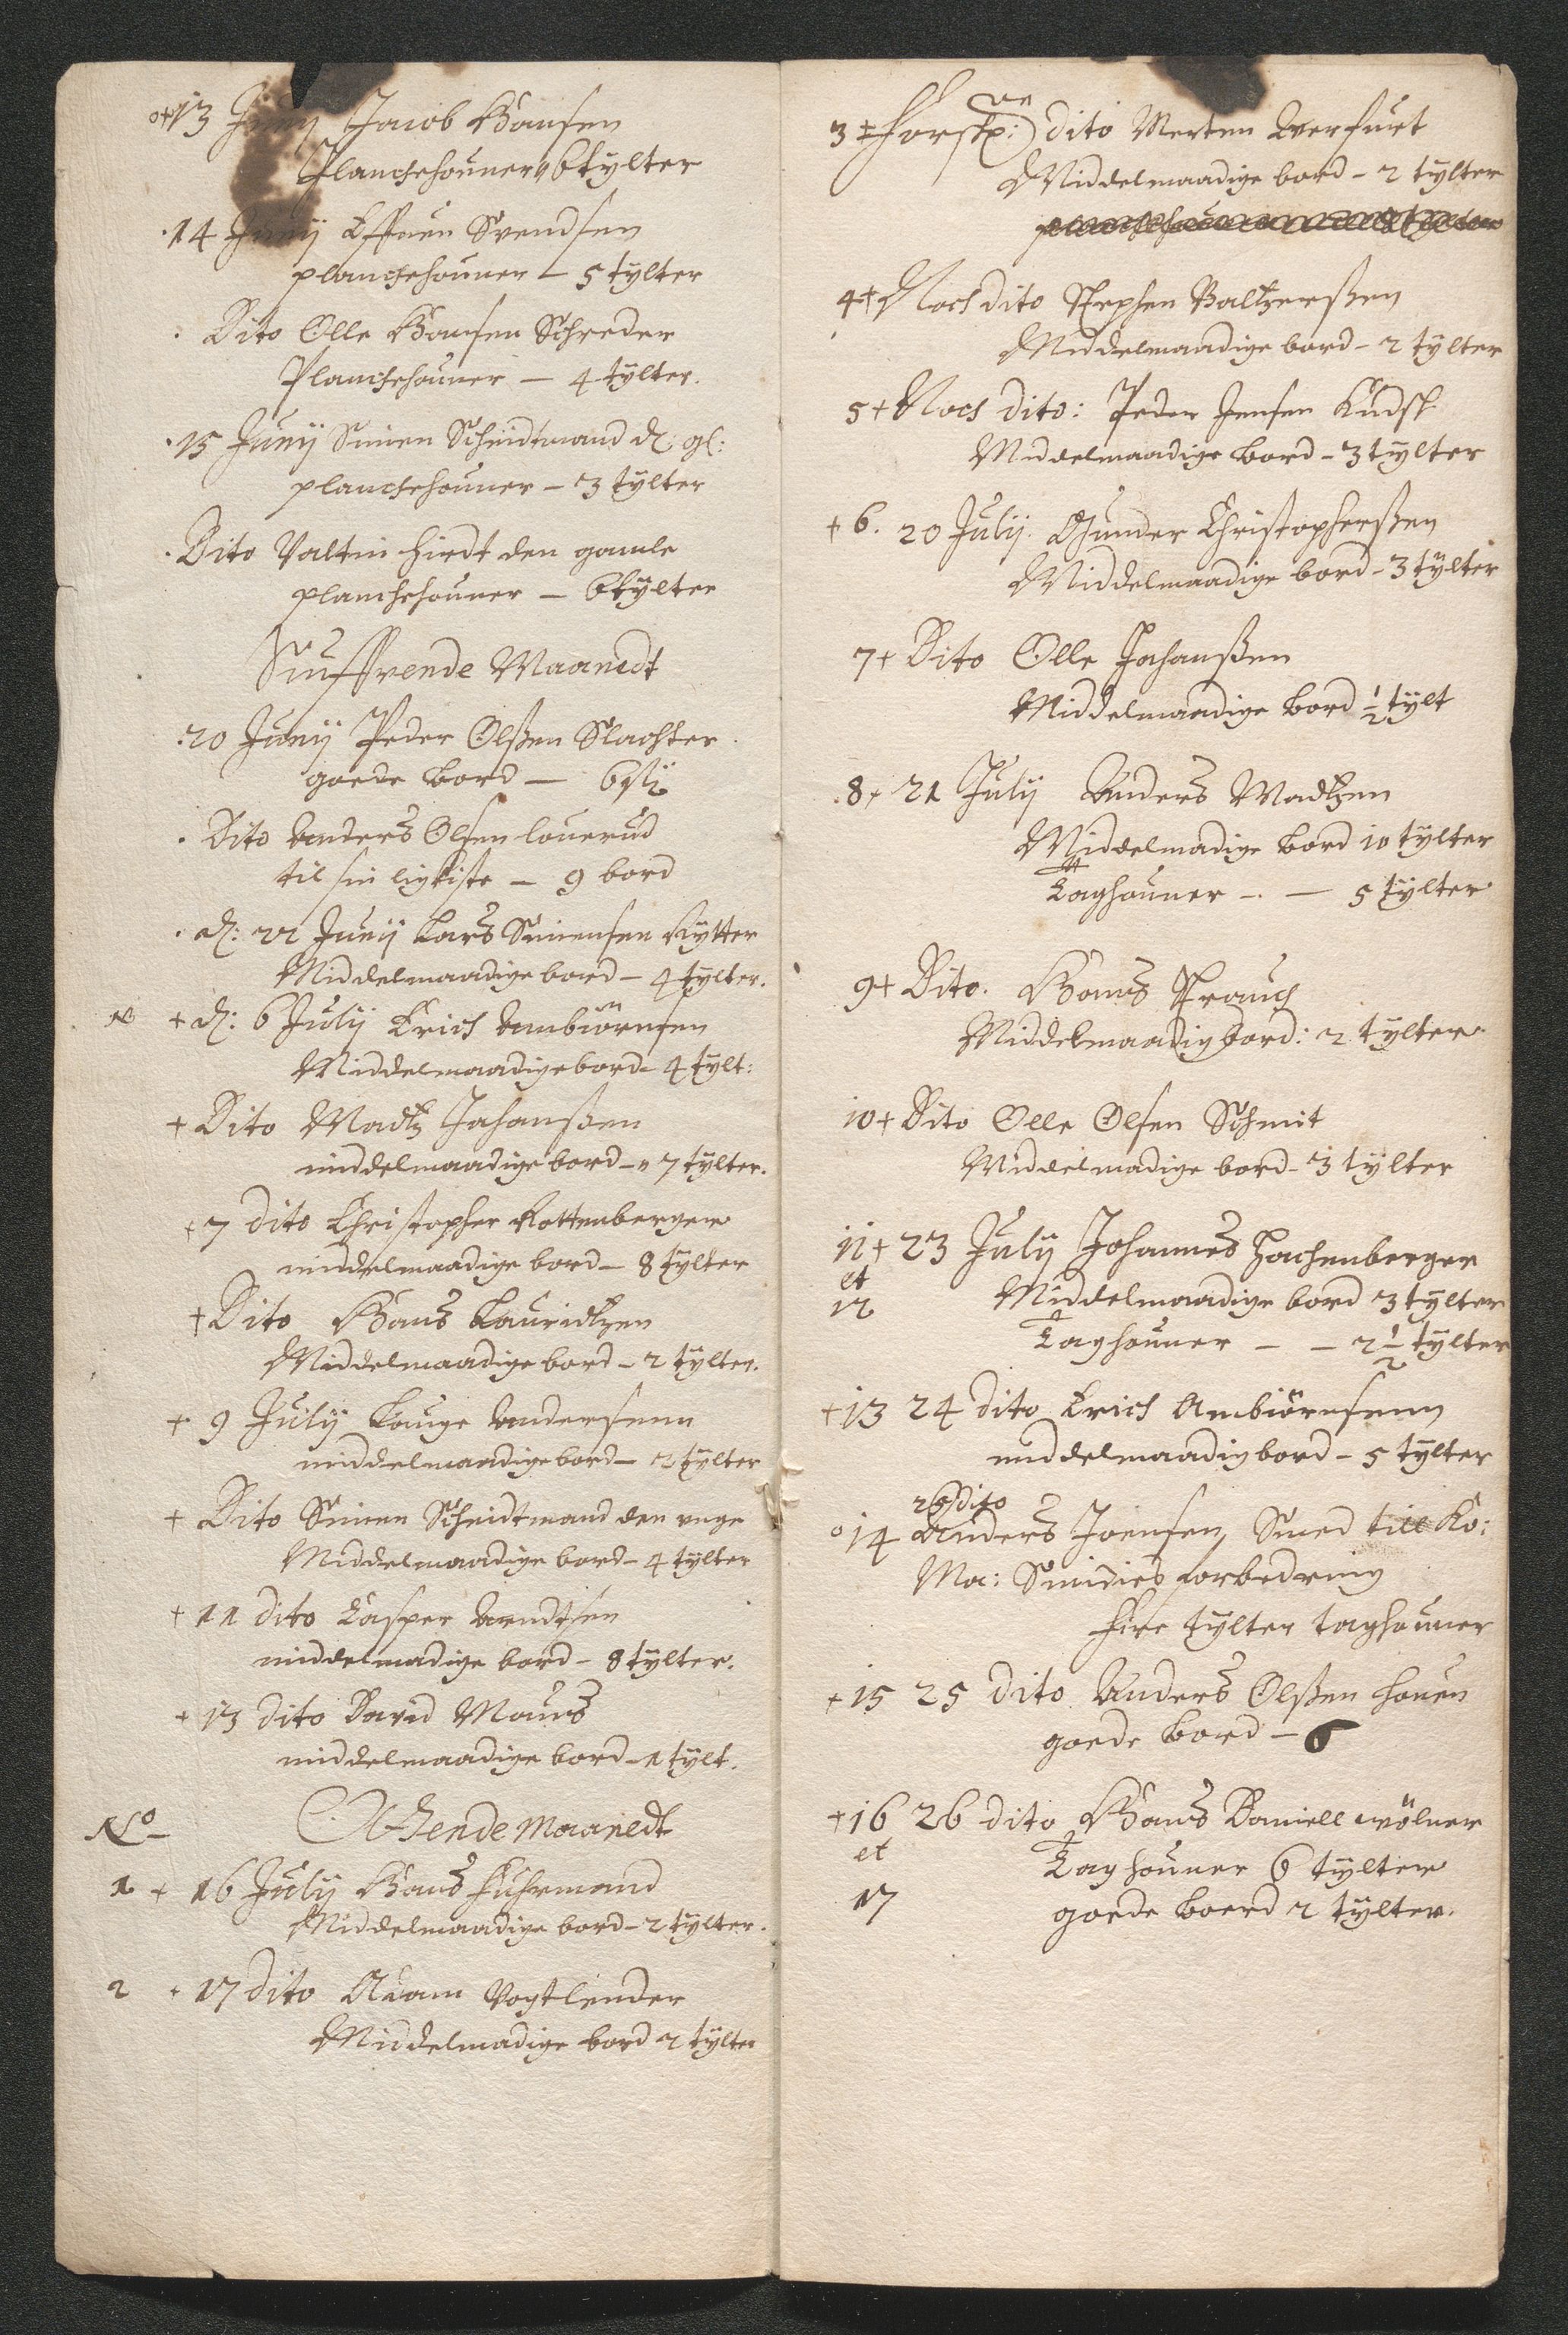 o+13 Junij Jacob Hansen
Planchehouner 6 tylter
14 Junij Effuen Svendsen
planchehouner - 5 tylter
Dito Olle Hansen Schreder
Planchehouner - 4 tylter.
15 Junij Simen Schmidtmand d. gl:
planchehouner - 3 tylter
Dito Valtin hirdt den gamle
planchehouner - 6 tylter
Siuffvende Maanedt
20 Junij Peder Olßen Slachter
goede bord - 6 ty
Dito Anders Olsen louerud
til sin ligkiste - 9 bord
d: 22 Junij Lars Simensen Rytter
Middelmaadige bord - 4 tylter.
N + d: 6 Julij Erich Ambiörnsen
Middelmaadige bord - 4 tylt:
+ Dito Madtz Johanßen
middelmaadige bord - 7 tylter.
+ 7 dito Christopher Rottenberger
middelmaadige bord - 8 tylter
+ Dito Hans Lauridtzen
Middelmaadige bord - 2 tylter.
+ 9 Julij Lauge Andersenn
middelmaadige bord - 2 tylter
+ Dito Simen Schmidtmand den unge
Middelmaadige bord - 4 tylter
+ 11 dito Casper Arndtsen
middelmadige bord - 8 tylter.
+ 13 dito David Mauns
middelmaadige bord - 1 tylt.
No - Ottende Maanedt
1 + 16 Julij Hans Fuhrmand
Middelmaadige bord - 2 tylter.
2 + 17 dito Adam Vogtlender
Middelmadige bord 2 tylter
3 + dito Merten Werfuert
Middelmaadige bord - 2 tylter
4 + Noch dito Stephen Baltzerßen
Middelmaadige bord - 2 tylter
5 + Noch dito: Peder Jensen Kudsk
Middelmaadige bord - 3 tylter
+ 6. 20 Julij. Gunder Christopherßen
Middelmaadige bord - 3 tylter
7 + Dito Olle Johanßen
Middelmaadige bord 1/2 tylt
8 + 21 Julij Anders Madtzen
Middelmadige bord 10 tylter
Taghouner - - 5 tylter
9 + Dito. Hans Strauch
Middelmaadig bord: 2 tylter
10 + Dito Olle Olsen Schmit
Middelmadige bord - 3 tylter
11 + 23 Julij Johannes Hachenberger
et
12 Middelmaadige bord 3 tylter
Taghouner - - 2 1/2 tylter
+ 13 24 dito Erich Ambiörnsenn
middelmaadig bord - 5 tylter
dito
o 14 Anders Joensen, Smed till Ko:
Ma: Smidies forbedring
fire tylter taghouner
+ 15 25 dito Anders Olßen houen
goede bord - 6
+ 16 26 dito Hans Daniell wölner
et Taghouner 6 tylter
17 goede boerd 2 tylter.